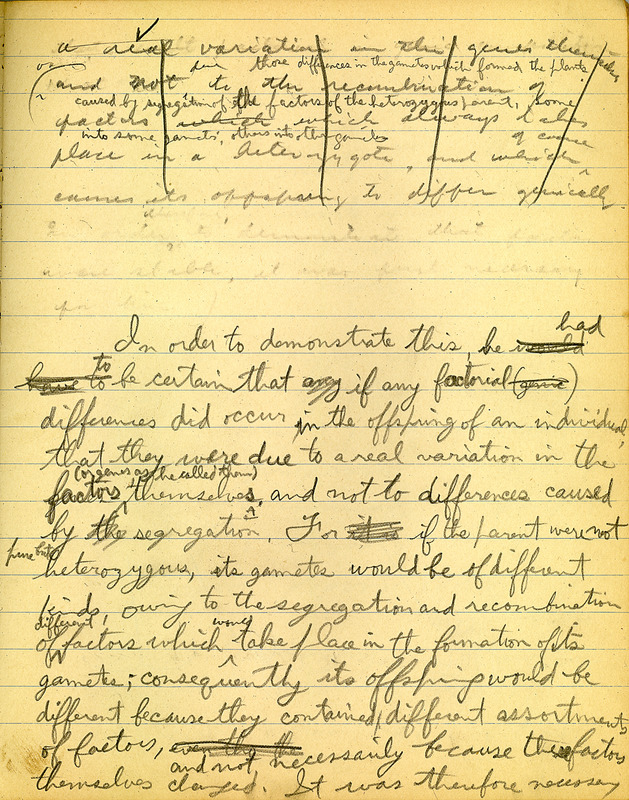 a real variation in the genes themselves
or in those differences in the gametes which formed the plants
and not to the recombination of
caused by segregation of the factors of the heterozygous parent, some
factors which which always takes
into some gametes, others into other gametes of course
place in a heterozygote, and which
causes its offspring to differ genically
that
were stable, it was first necessary
In order to demonstrate this, he would had
have to to be certain that any if any factorial (genic)
differences did occur in the offspring of an individual,
that they were due to a real variation in the
(or genes as he called them)
factors themselves, and not to differences caused
by the segregation. For it is if the parent were not
pure but
heterozygous, its gametes would be of different
kinds, owing to the segregation and recombination
different would
of factors which take place in the formation of its
gametes; consequently its offspring would be
different because they contained different assortments
of factors, even tho the
and not necessarily because the factors
themselves changed. It was therefore necessary